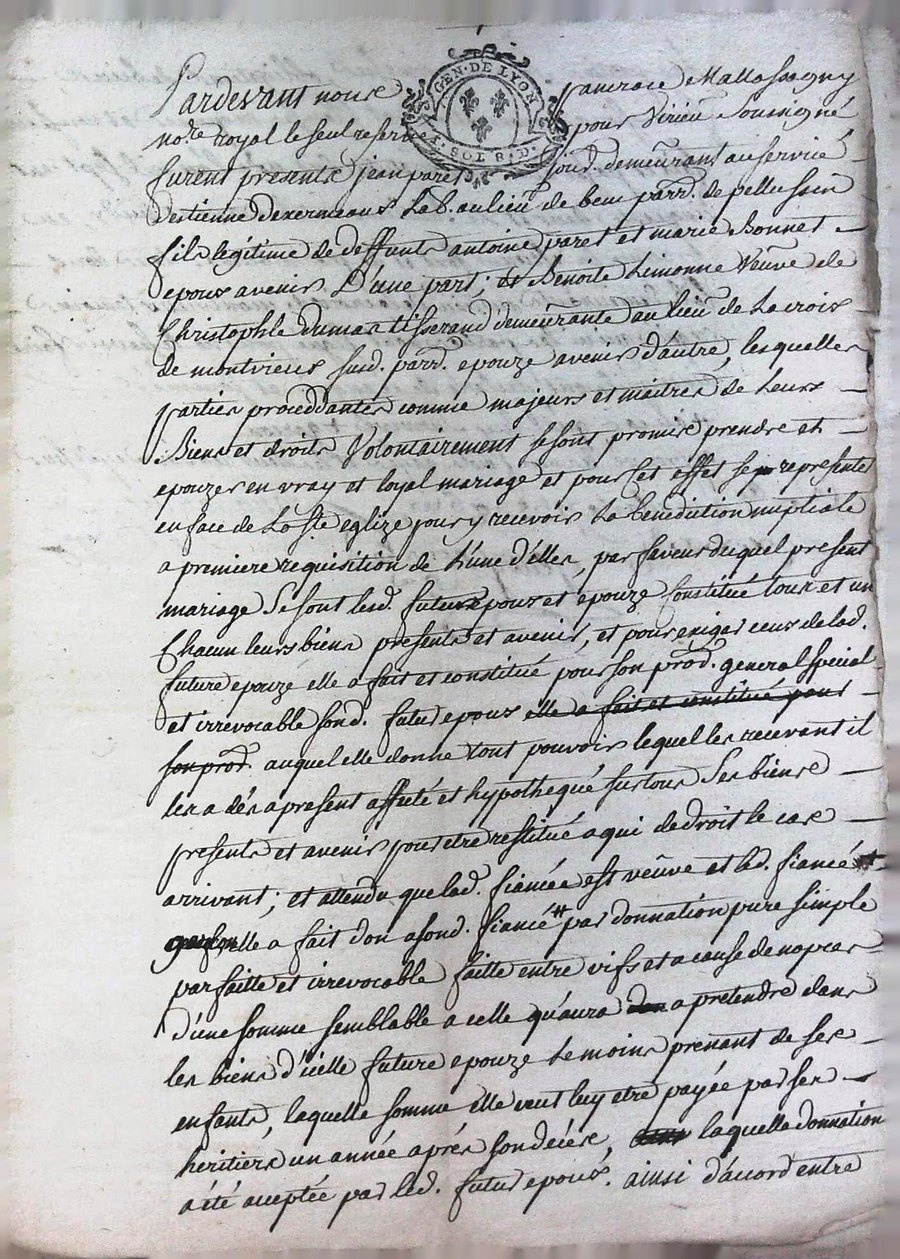 GEN·DE LYON
1·SOL 8·D·
Pardevant nous pancrace Mallassagny
no.re royal le seul reservé pour Virieu Soussigné
furent presents jean paret jourd. demeurant au service
destienne dexermeaux Lab. au lieu de beu parr. de pellussin
fils légitime de deffunts antoine paret et marie Bonnet
epoux avenir D'une part; & Benoite Limonne Veuve de
Christophle dumas tisserand demeurante au lieu de La croix
de montvieux susd. parr. epouze avenir d'autre, lesquelles
parties proceddantes comme majeurs et maitres de Leurs
Biens et droits Volontairement se sont promis prendre et
epouzer en vray et loyal mariage et pour cet effet se representer
en face de La Ste eglize pour y recevoir La benediction nuptiale
a premiere requisition de L'une d'elles, par faveur duquel present
mariage Se sont lesd. futurs epoux et epouze Constitué tous et un
Chacun leurs biens presents et avenir, et pour exiger ceux de lad.
future epouze elle a fait et constitué pour son prod. general special
et irrevocable sond. futur epoux elle a fait et constitué pour
son prod. auquel elle donne tout pouvoir lequel les recevant il
les a dés apresent affuté et hypothequé sur tous Ses biens
presents et avenir pour etre restitué a qui de droit le cas
arrivant; et attendu que lad. fiancée est veuve et led. fiancé
garçon elle a fait don a sond. fiancé # par donnation pure simple
parfaitte et irrevocable faitte entre vifs et a cause de nopces
d'une somme semblable a celle qu'aura a pretendre dans
les biens d'icelle future epouze Le moins prenant de ses
enfants, laquelle somme elle veut luy etre payée par ses
heritiers un année aprés son décés, laquelle donnation
a été acceptée par led. futur epoux. ainsi d'accord entre